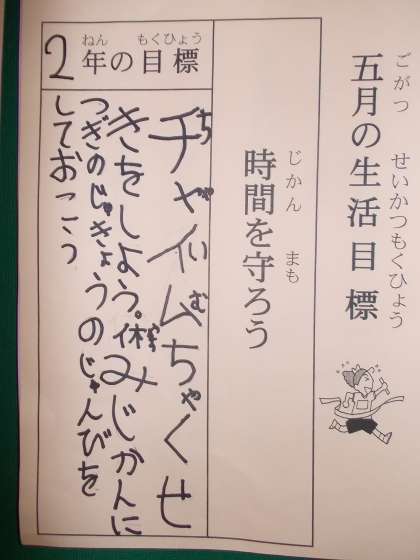 ごがつ せいかつもくひょう
五月の生活目標
じかん まも
時間を守ろう
ねん もくひょう
2年の目標
ちゃいむ
チャイムちゃくせ
やす
きをしよう。休みじかんに
つぎのじゅぎょうのじゅんびを
しておこう